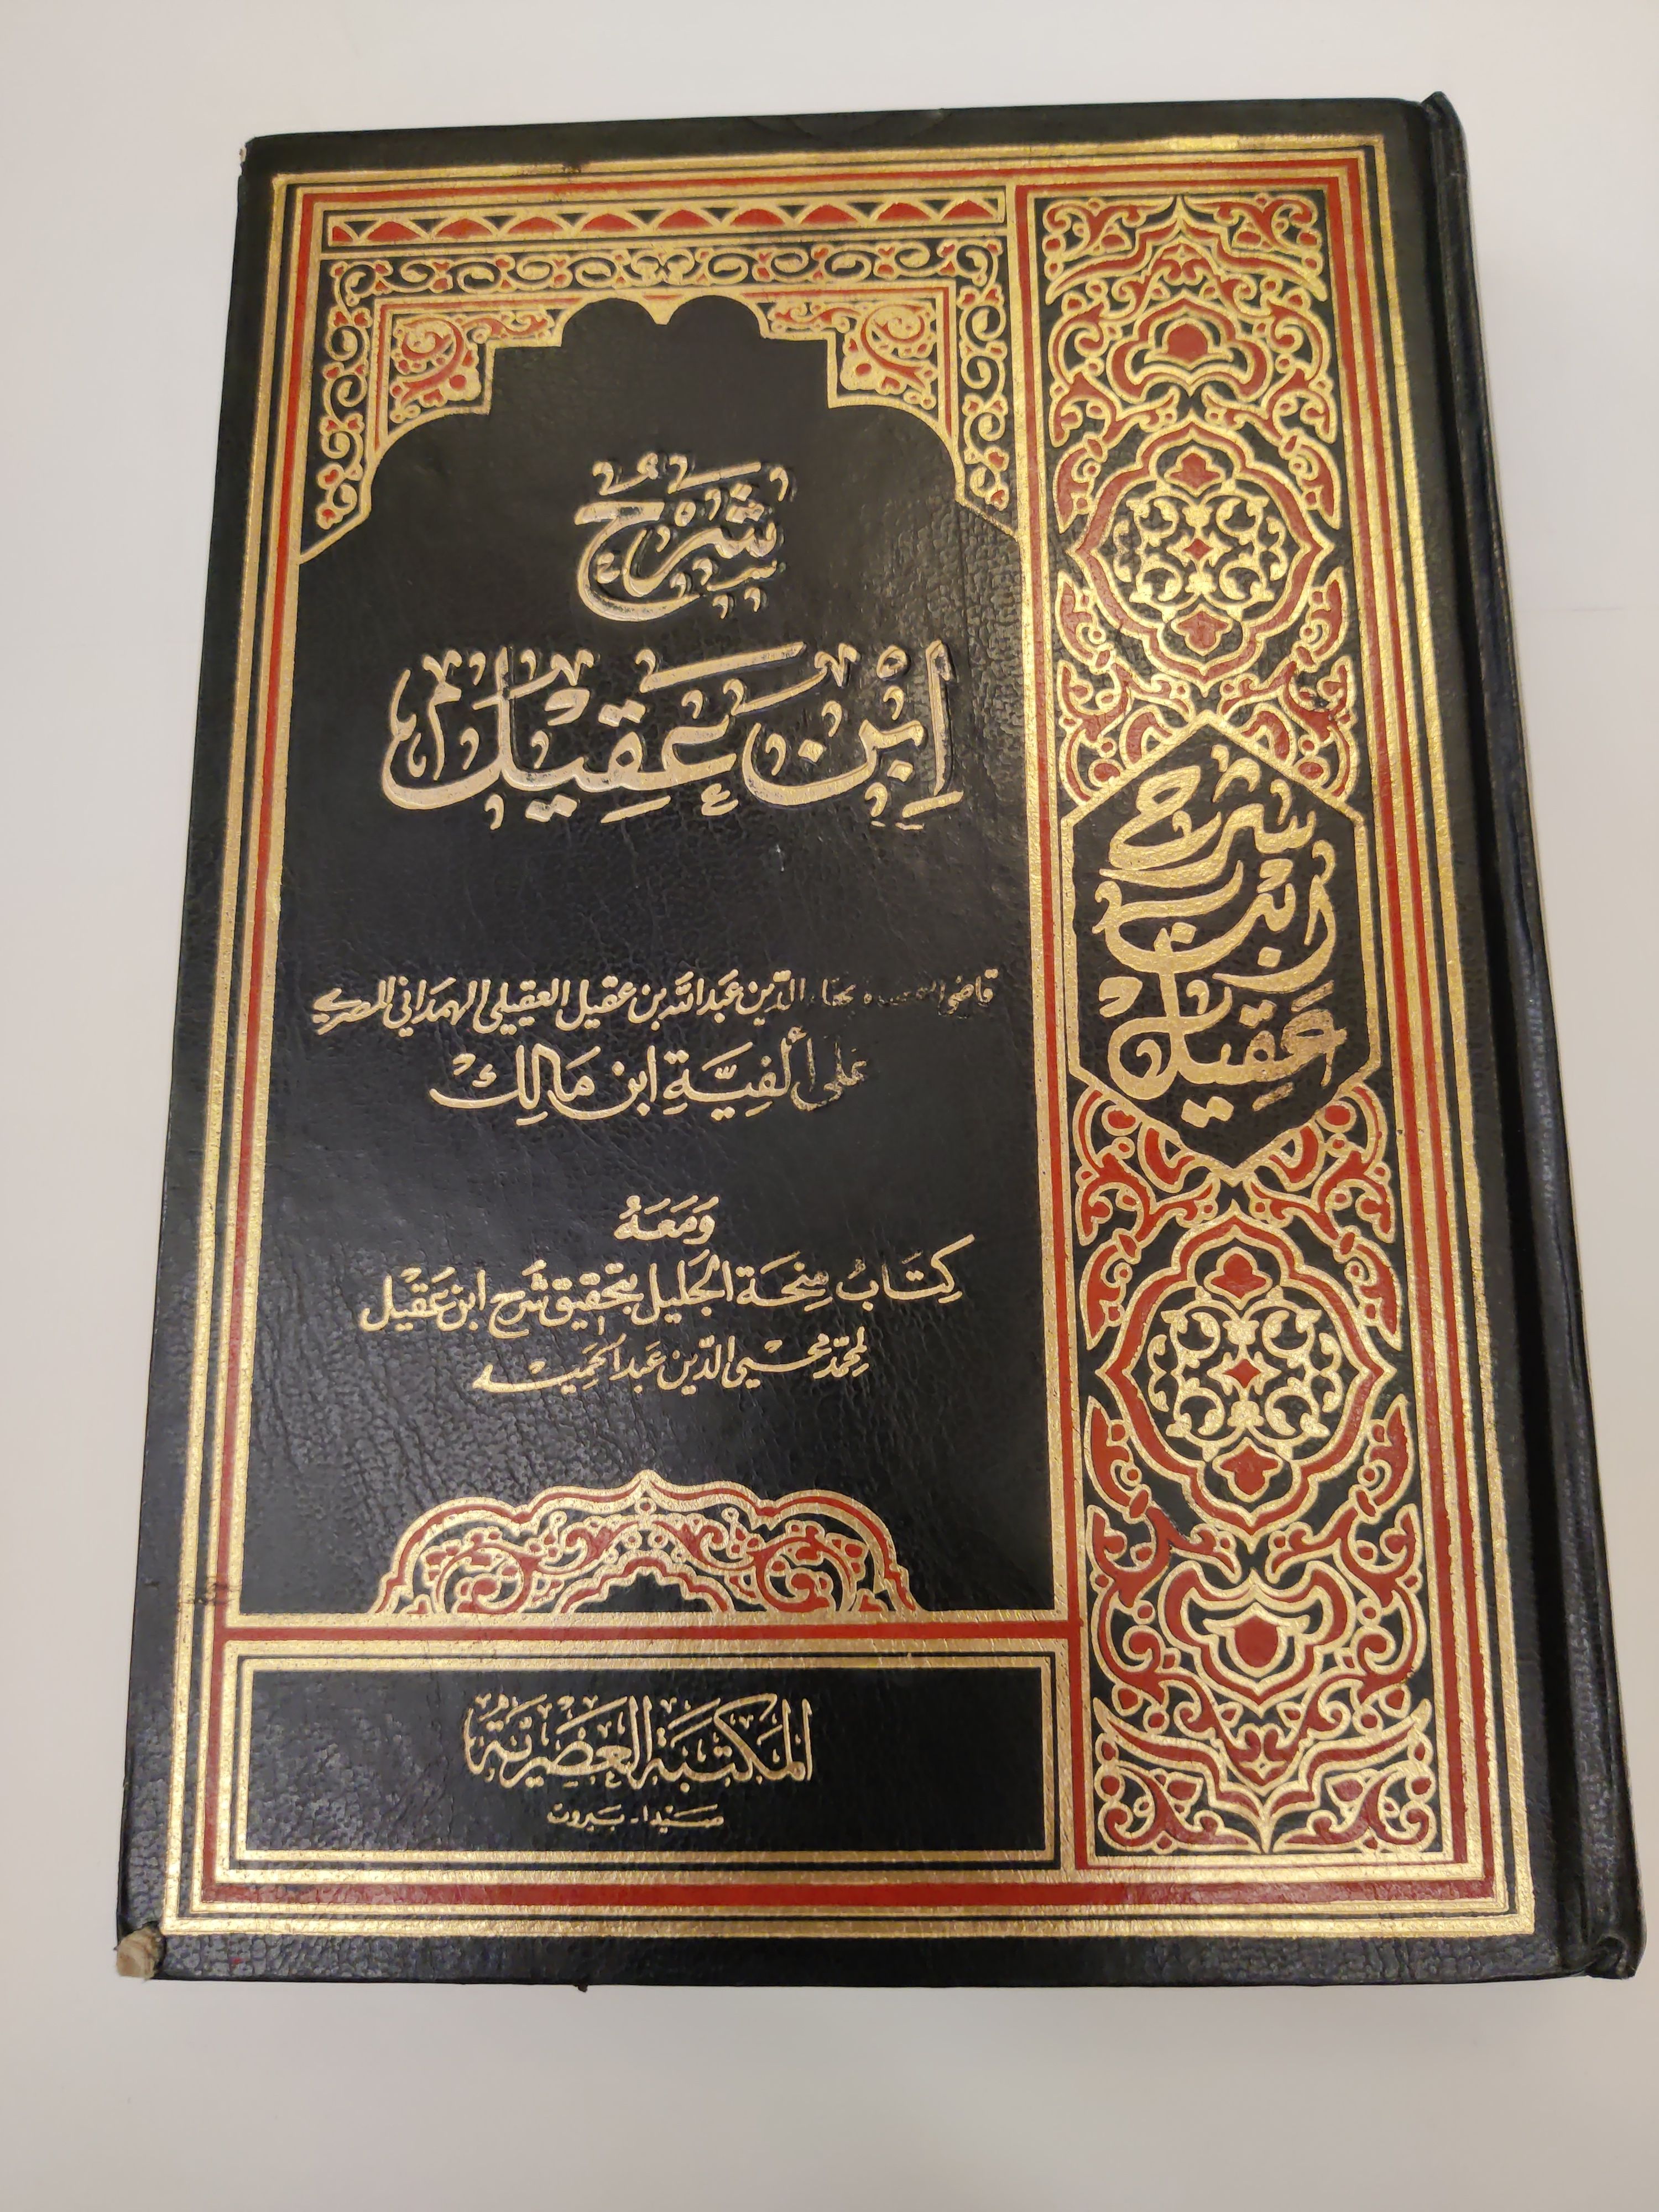 شَرْحُ
اِبْنِ عَقِيْل
قاضي بهاء الدين عبدالله بن عقيل العقيلي الهمداني المصري
على ألفِيَّةِ ابن مَالِكْ
وَمَعَهُ
كِتَابُ منِحَة الجَليل بتحقيق شَرح ابن عَقيْل
لمحمّد محيي الدّين عَبد الحَميْد
المَكتبَة العَصْريَّة
صَيْدا - بَيروت
شرح
ابن
عَقِيل